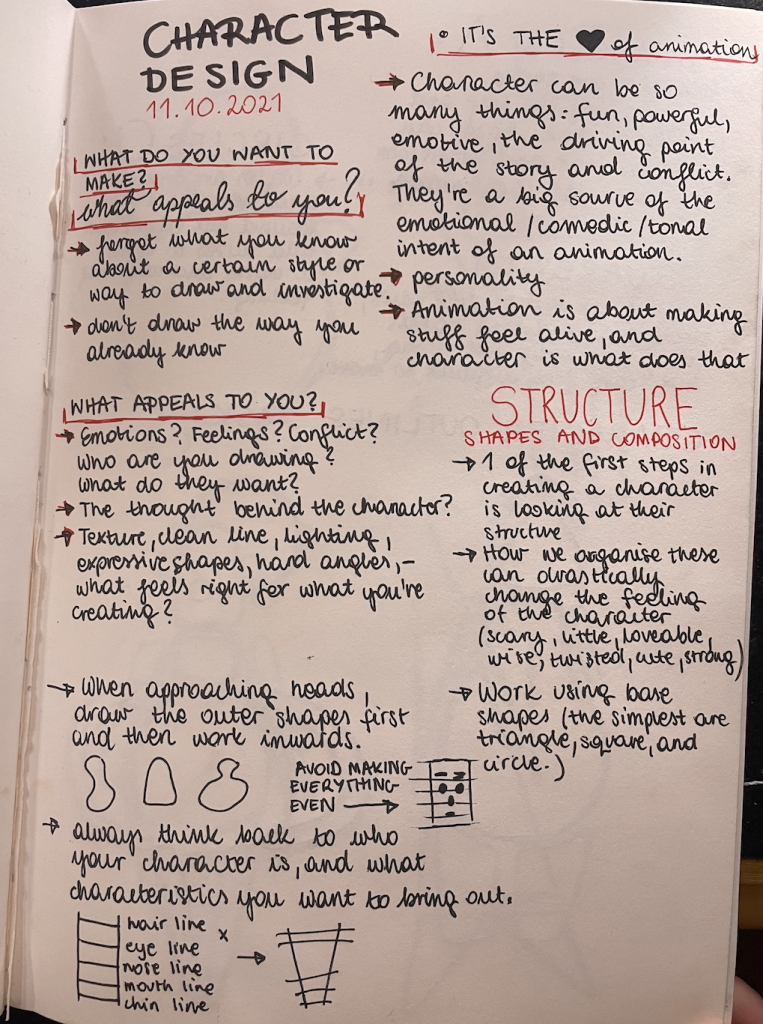 CHARACTER
DESIGN
11.10.2021
WHAT DO YOU WANT TO
MAKE?
what appeals to you?
→ forget what you know
about a certain style or
way to draw and investigate.
→ don't draw the way you
already know
WHAT APPEALS TO YOU?
→ Emotions? Feelings? Conflict?
Who are you drawing?
What do they want?
→ The thought behind the character?
→ Texture, clean line, lighting,
expressive shapes, hard angles,-
what feels right for what you're
creating?
• IT'S THE ♥ of animation
→ Character can be so
many things: fun, powerful,
emotive, the driving point
of the story and conflict.
They're a big source of the
emotional/comedic/tonal
intent of an animation.
→ personality
→ Animation is about making
stuff feel alive, and
character is what does that
STRUCTURE
SHAPES AND COMPOSITION
→ 1 of the first steps in
creating a character
is looking at their
structure
→ How we organise these
can drastically
change the feeling
of the character
(scary, little, loveable,
wise, twisted, cute, strong)
→ Work using base
shapes (the simplest are
triangle, square, and
circle.)
→ When approaching heads,
draw the outer shapes first
and then work inwards.
AVOID MAKING
EVERYTHING
EVEN →
→ always think back to who
your character is, and what
characteristics you want to bring out.
hair line x
eye line →
nose line
mouth line
chin line